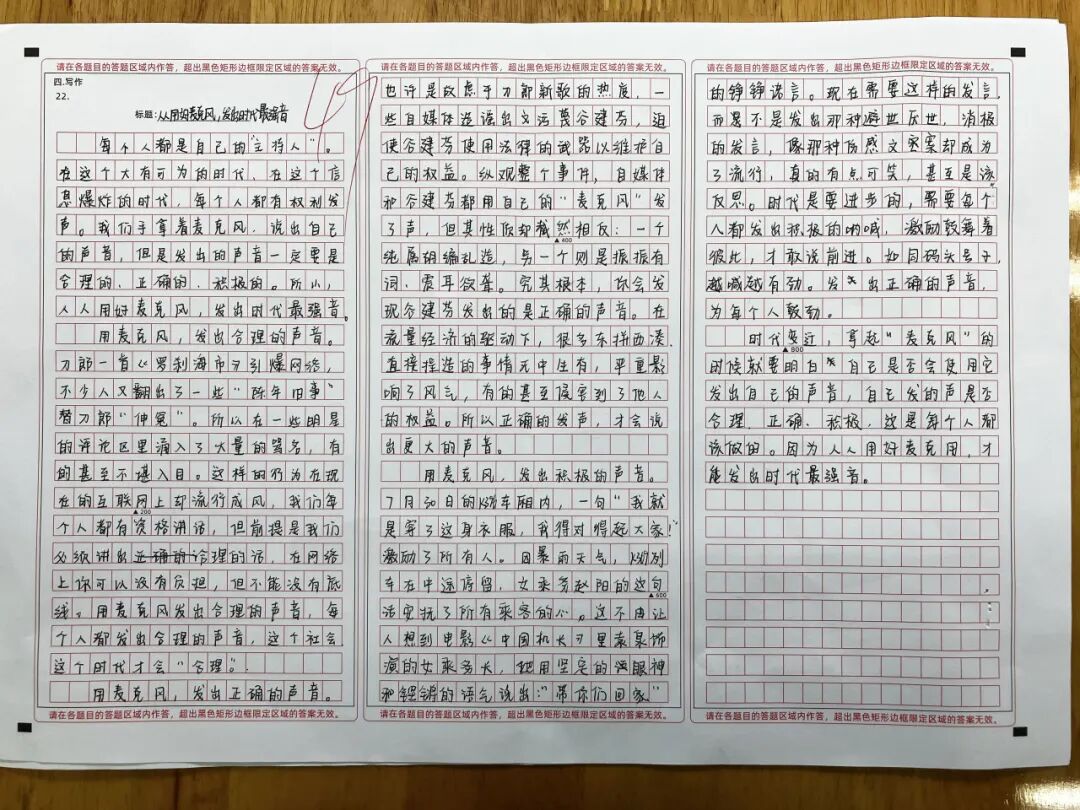 请在各题目的答题区域内作答，超出黑色矩形边框限定区域的答案无效。
四.写作
22.
标题：从用好麦克风，发出时代最强音
49
每个人都是自己的"主持人"。
在这个大有可为的时代，在这个信
息爆炸的时代，每个人都有权利发
声。我们手拿着麦克风，说出自己
的声音，但是发出的声音一定要是
合理的、正确的、积极的。所以，
人人用好麦克风，发出时代最强音。
用麦克风，发出合理的声音。
刀郎一首《罗刹海市》引爆网络，
不少人又翻出了一些"陈年旧事"
替刀郎"伸冤"。所以在一些明星
的评论区里涌入了大量的骂名，有
的甚至不堪入目。这样的行为在现
在的互联网上却流行成风，我们每
▲200
个人都有资格讲话，但前提是我们
必须讲出正确的合理的话，在网络
上你可以没有负担，但不能没有底
线。用麦克风发出合理的声音，每
个人都发出合理的声音，这个社会
这个时代才会"合理"。
用麦克风，发出正确的声音。
请在各题目的答题区域内作答，超出黑色矩形边框限定区域的答案无效。
请在各题目的答题区域内作答，超出黑色矩形边框限定区域的答案无效。
也许是故虑于刀郎新歌的热度，一
些自媒体造谣出文污蔑谷建芬，迫
使谷建芬使用法律的武器以维护自
己的权益。纵观整个事件，自媒体
和谷建芬都用自己的"麦克风"发
了声，但其性质却截然相反：一个
▲400
纯属胡编乱造，另一个则是振振有
词、震耳欲聋。究其根本，你会发
现谷建芬发出的是正确的声音。在
流量经济的驱动下，很多东拼西凑，
直接捏造的事情无中生有，严重影
响了风气，有的甚至侵害到了他人
的权益。所以正确的发声，才会说
出更大的声音。
用麦克风，发出积极的声音。
7月30日的K396车厢内，一句"我就
是穿了这身衣服，我得对得起大家！"
激励了所有人。因暴雨天气，K396列
车在中途停留，女乘务赵阳的这句
▲600
话安抚了所有乘客的心。这不由让
人想到电影《中国机长》里袁泉饰
演的女乘务长，她用坚定的眼神
和铿锵的语气说出："带你们回家"
请在各题目的答题区域内作答，超出黑色矩形边框限定区域的答案无效。
请在各题目的答题区域内作答，超出黑色矩形边框限定区域的答案无效。
的铮铮诺言。现在需要这样的发言，
而是不是发出那种避世厌世，消极
的发言，像那种伤感文案却成为
了流行，真的有点可笑，甚至是该
反思。时代是要进步的，需要每个
人都发出积极的呐喊，激励鼓舞着
彼此，才敢说前进。如同码头号子，
越喊越有劲。发出正确的声音，
为每个人鼓劲。
时代变迁，拿起"麦克风"的
▲800
时候就要明白自己是否会使用它
发出自己的声音，自己发的声是否
合理、正确、积极，这是每个人都
该做的。因为人人用好麦克用，才
能发出时代最强音。
请在各题目的答题区域内作答，超出黑色矩形边框限定区域的答案无效。